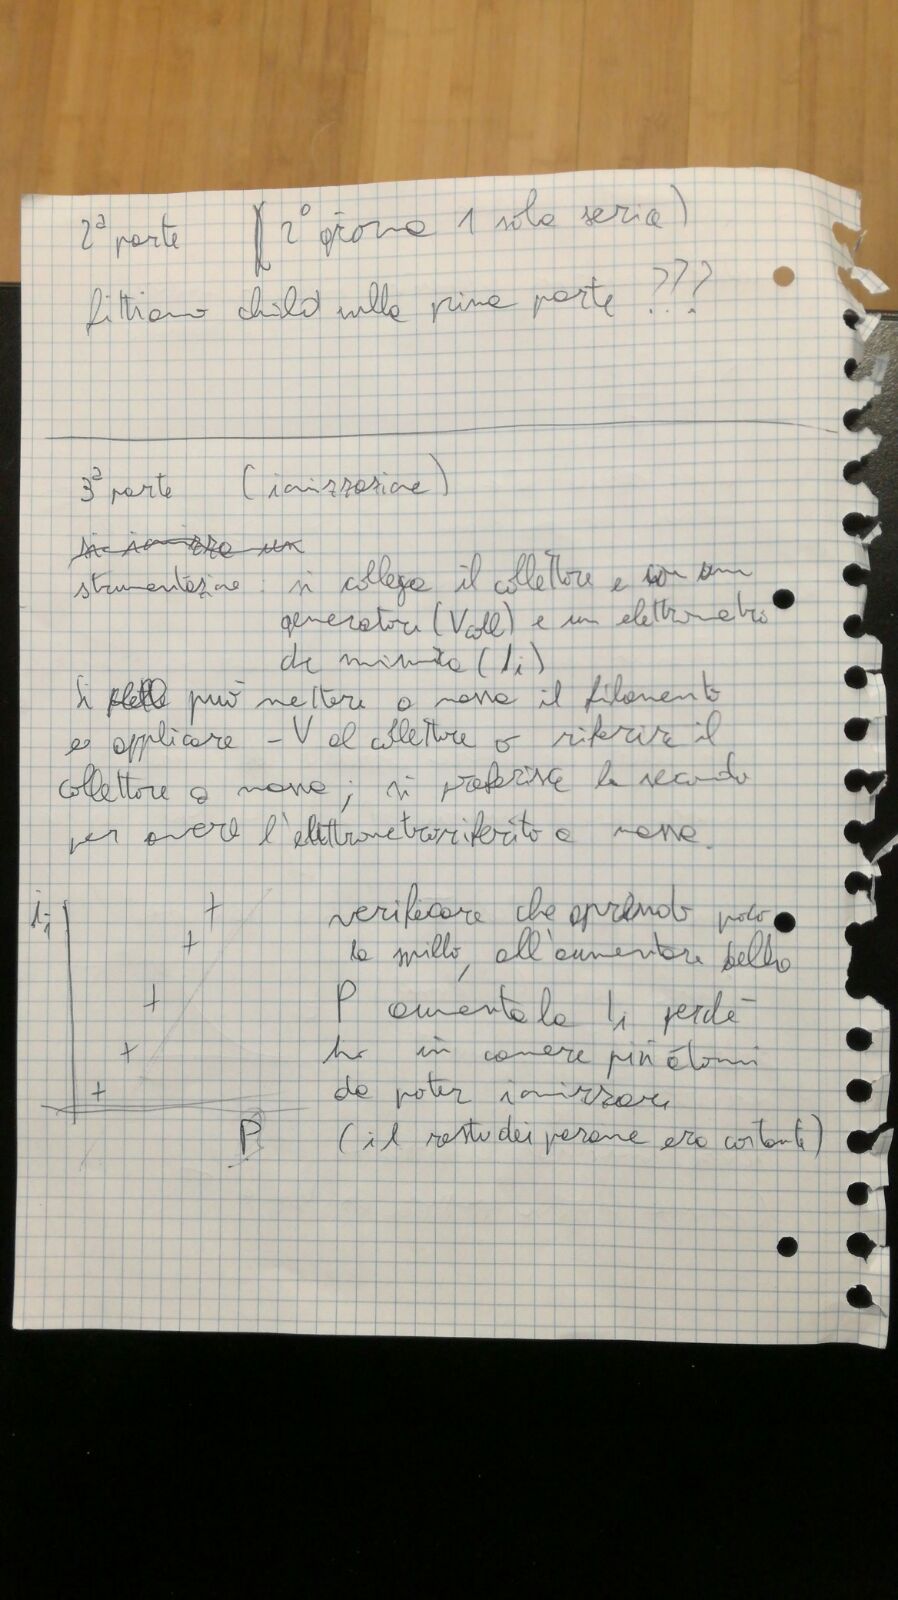 2ª parte (2° giorno 1 sola serie)
fittiamo child sulla prima parte ???
3ª parte (ionizzazione)
strumentazione: si collega il collettore e con un
generatore (Vcoll) e un elettrometro
che misura (Ii)
Si può mettere a massa il filamento
e applicare -V al collettore o riferire il
collettore a massa; si preferisce la seconda
per avere l'elettrometro riferito a massa.
Ii
verificare che aprendo poco
lo spillo, all'aumentare della
P aumenta la Ii perché
ho in camera più atomi
da poter ionizzare
P (il resto dei parame era costante)